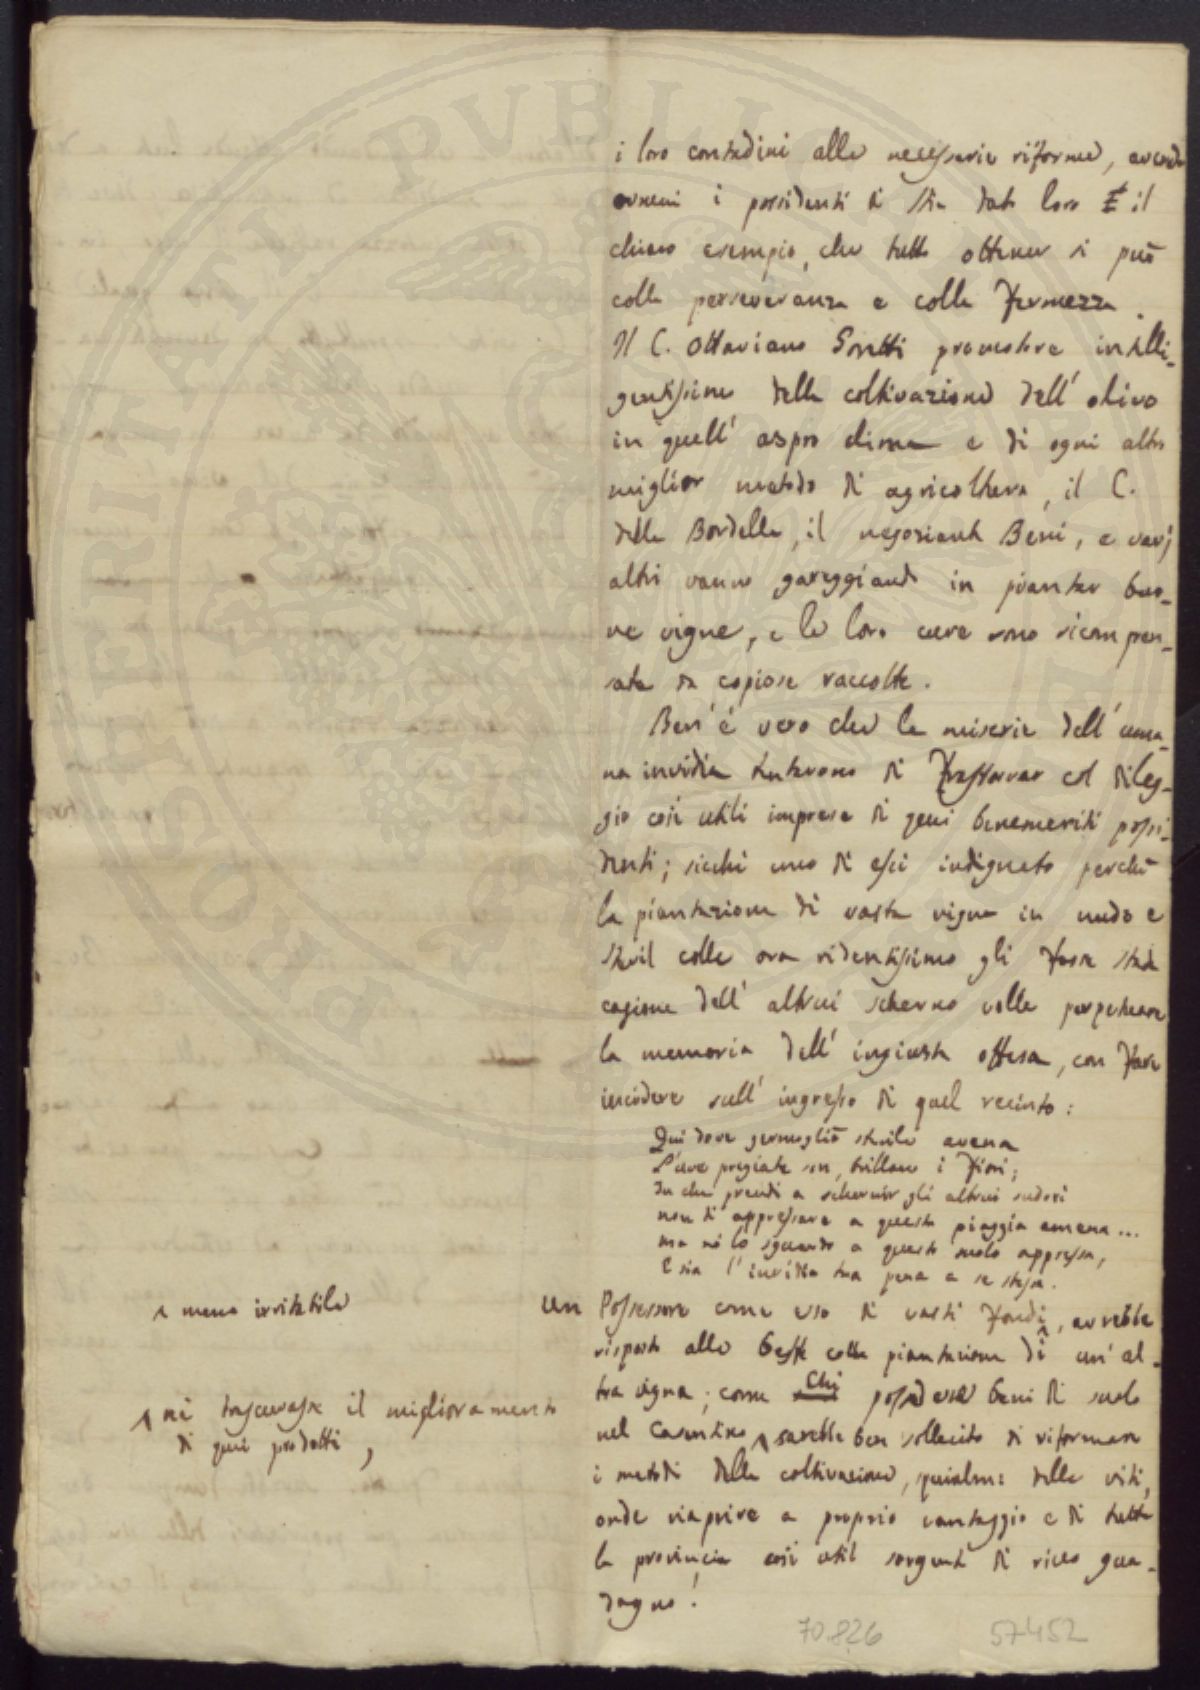 i loro contadini alle necessarie riforme, avendo
ormai i possidenti di Stia dato loro il
chiaro esempio, che tutto ottener si può
colla perseveranza e colla fermezza.
Il C. Ottaviano Goretti promotore intelli-
gentissimo della coltivazione dell' olivo
in quell' aspro clima e di ogni altro
miglior metodo di agricoltura, il C.
della Bordella, il negoziante Beni, e varj
altri vanno gareggiando in piantar buo-
ne vigne, e le loro cure sono ricompen-
sate da copiose raccolte.
Ben' è vero che le miserie dell' uma-
na invidia tentarono di frastornar col dileg-
gio così utili imprese di quei benemeriti possi-
denti; sicchè uno di essi indignato perchè
la piantazione di vasta vigna in nudo e
steril colle ora ridentissimo gli fosse stata
cagione dell' altrui scherno volle perpetuare
la memoria dell' ingiusta offesa, con fare
incidere sull' ingresso di quel recinto:
Qui dove germogliò sterile avena
L'uve pregiate son, brillano i fiori;
Tu che prendi a schernir gli altrui sudori
non ti appressare a questa piaggia amena...
ma se lo sguardo a questo suolo appressa,
E sia l'invidia tua pena a se stessa.
^ meno irritabile
un Possessore come esso di vasti fondi ^, avrebbe
risposto alle beffe colla piantazione di un' al-
tra vigna; come Chi possedesse beni di suolo
^ nè trascurasse il miglioramento
di quei prodotti,
nel Casentino ^ sarebbe ben sollecito di riformare
i metodi della coltivazione, specialm: delle viti,
onde riaprire a proprio vantaggio e di tutta
la provincia così util sorgente di ricco gua-
dagno!
70.826 57452
PROSPERITATI PVBLICAE